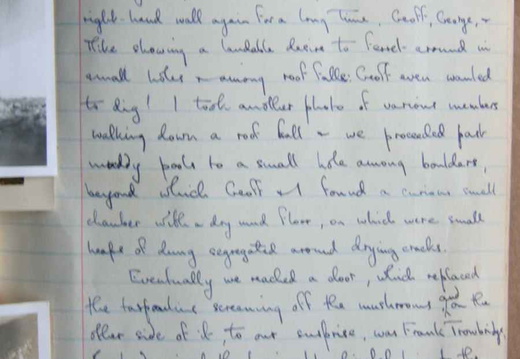 right-hand wall again for a long time, Geoff, George, &
Mike showing a laudable desire to ferret around in
small holes & among roof falls: Geoff even wanted
to dig! I took another photo of various members
walking down a roof fall & we proceeded past
muddy pools to a small hole among boulders,
beyond which Geoff & I found a curious small
chamber with a dry mud floor, on which were small
heaps of dung segregated around drying cracks.
Eventually we reached a door, which replaced
the tarpaulins screening off the mushrooms and on the
other side of it, to our surprise, was Frank Trowbridge,